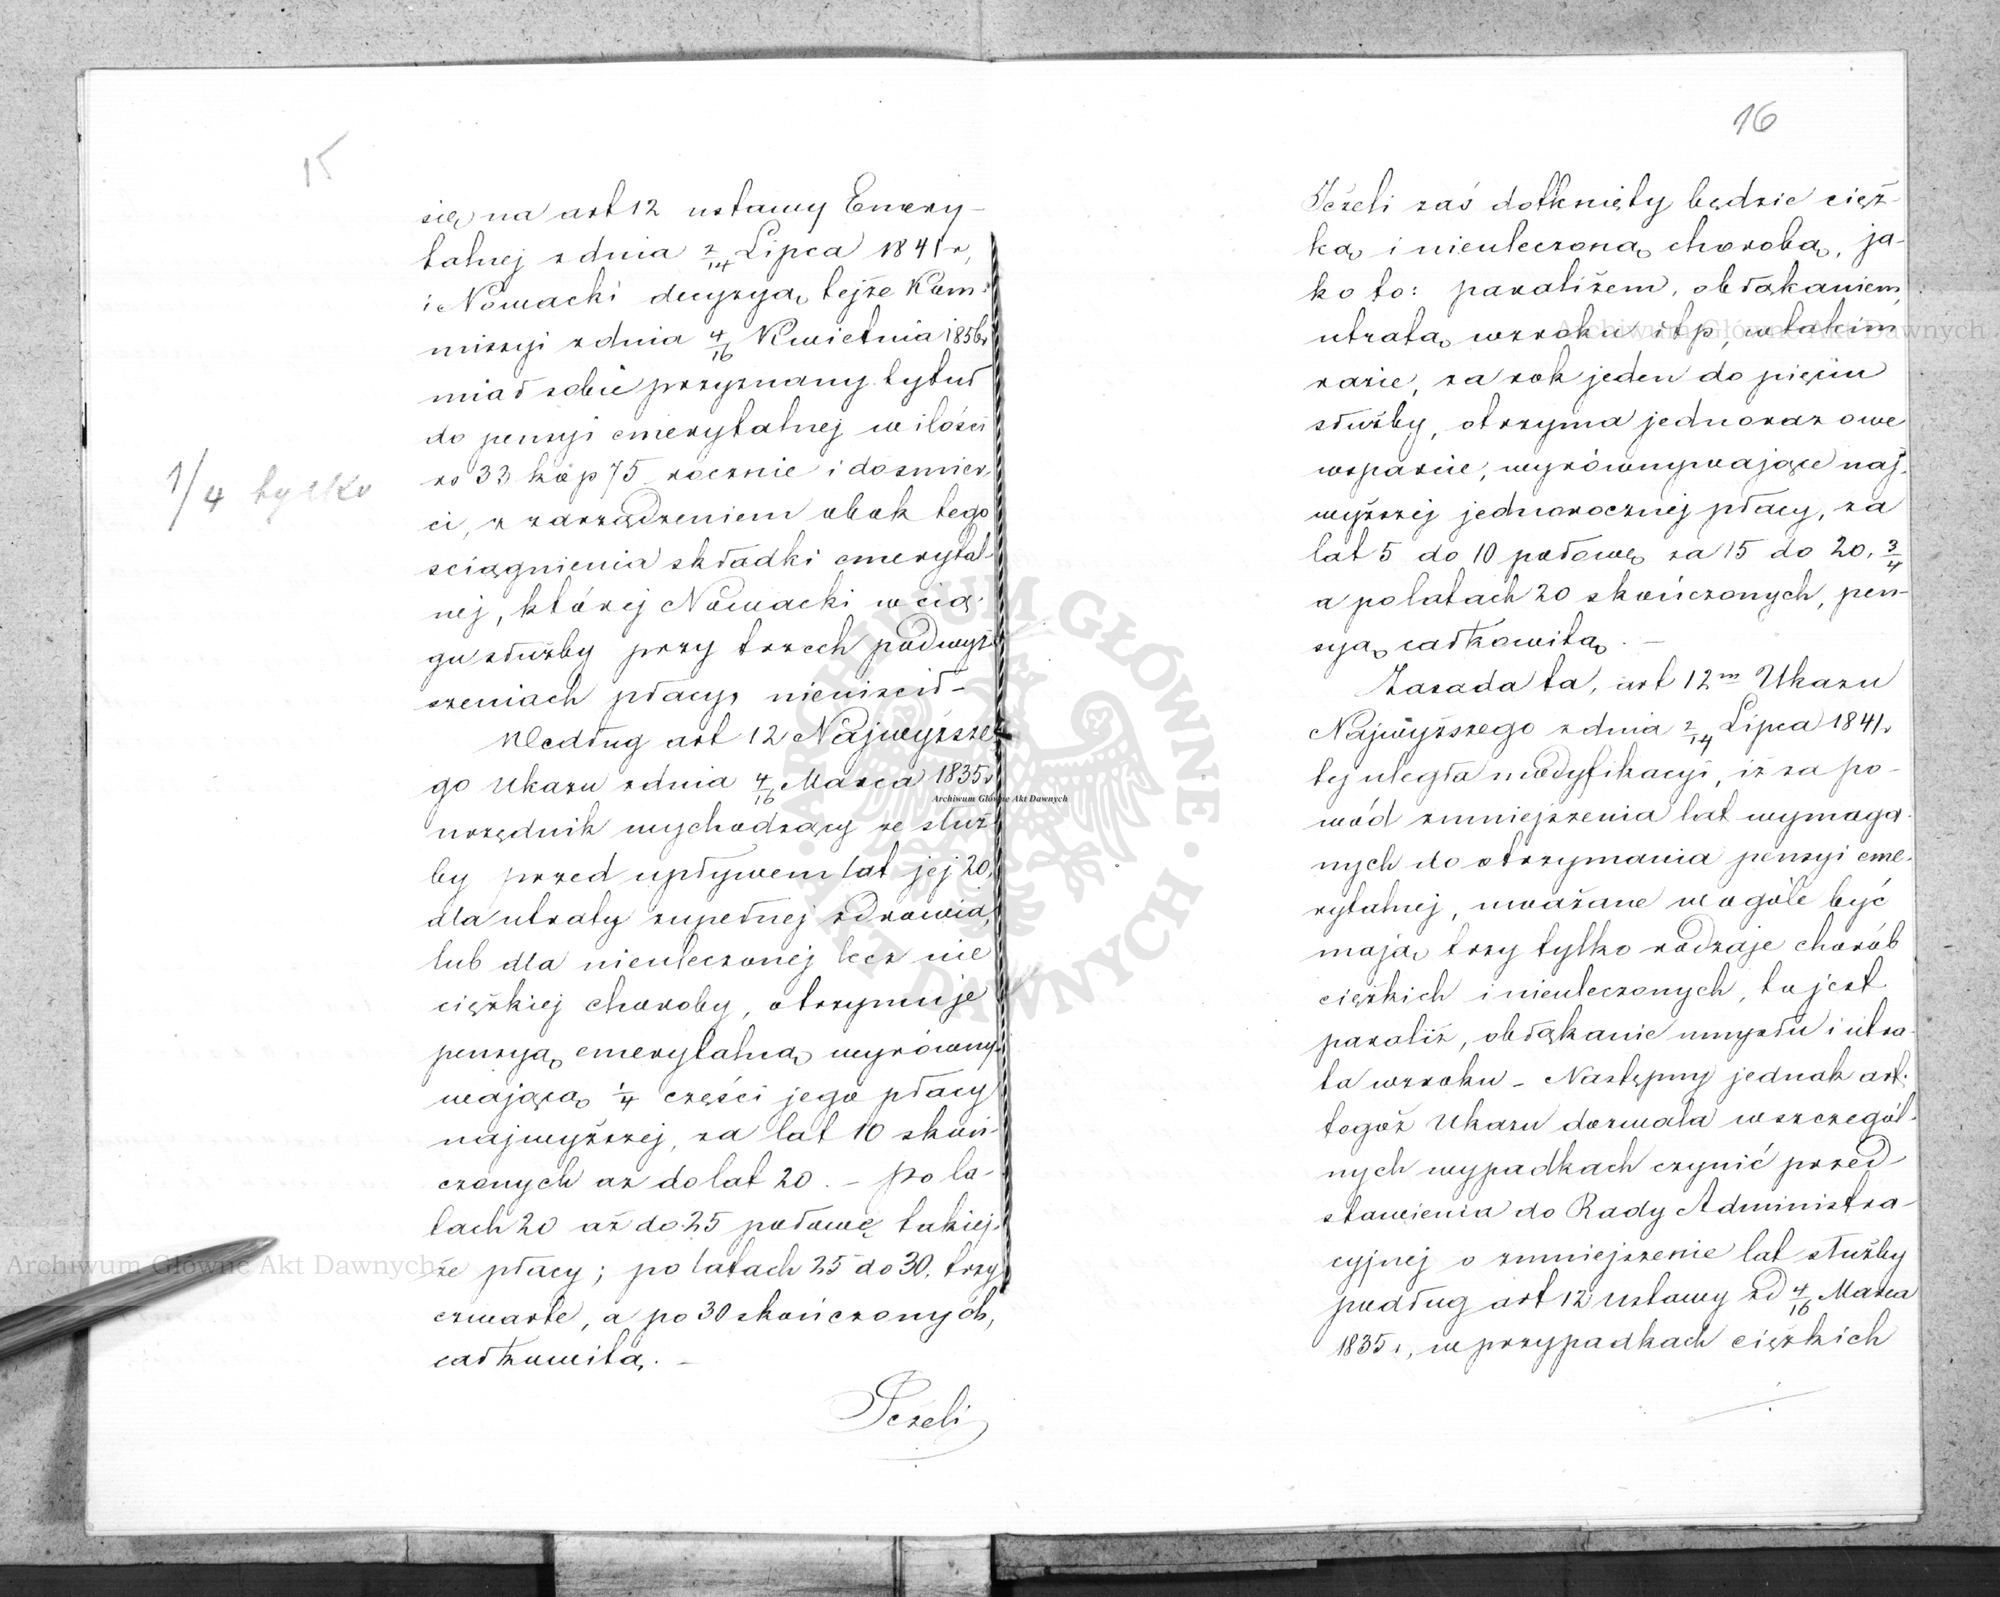 15
się na art 12 ustawy Emery-
talnej z dnia 2/14 Lipca 1841 r,
i Nowacki decyzyą tejże Kom-
missyi z dnia 4/16 Kwietnia 1856 r
miał sobie przyznany tytuł
do pensyi emerytalnej w ilości
rs 33 kop 75 rocznie i do śmier
ci, z zarządzeniem obok tego
ściągnienia składki emerytal-
nej, której Nowacki w cią-
gu służby przy trzech podwyż
szeniach płacy, nieuiścił -
Według art 12 Najwyższe
go Ukazu z dnia 4/16 Marca 1835 r
urzędnik wychodzący ze służ
by przed upływem lat jej 20,
dla utraty zupełnej zdrowia,
lub dla nieuleczonej lecz nie
ciężkiej choroby, otrzymuje
pensyą emerytalną wyrówny-
wającą 1/4 części jego płacy
najwyższej, za lat 10 skoń-
czonych aż do lat 20. - Po la-
tach 20 aż do 25 połowę takiej-
że płacy; po latach 25 do 30, trzy
czwarte, a po 30 skończonych,
całkowitą. -
Jeżeli
1/4 tylko
16
Jeżeli zaś dotknięty będzie cięż-
ką i nieuleczoną chorobą, ja-
ko to: paraliżem, obłąkaniem,
utratą wzroku itp, w takim
razie, za rok jeden do pięciu
służby, otrzyma jednorazowe
wsparcie, wyrównywające naj-
wyższej jednorocznej płacy, za
lat 5 do 10 połowę za 15 do 20, 3/4
a po latach 20 skończonych, pen-
syą całkowitą. -
Zasada ta, art 12m Ukazu
Najwyższego z dnia 2/14 Lipca 1841 r
tej uległa modyfikacyi, iż za po-
wód zmniejszenia lat wymaga-
nych do otrzymania pensyi eme-
rytalnej, uważane w ogóle być
mają trzy tylko rodzaje chorób
ciężkich i nieuleczonych, to jest
paraliż, obłąkanie umysłu i utra-
ta wzroku - Następny jednak art.
tegoż Ukazu dozwala w szczegól-
nych wypadkach czynić przed-
stawienia do Rady Administra-
cyjnej o zmniejszenie lat służby
podług art 12 ustawy zd 4/16 Marca
1835 r, w przypadkach ciężkich
Archiwum Główne Akt Dawnych
Archiwum Główne Akt Dawnych
Archiwum Główne Akt Dawnych
ARCHIWUM GŁÓWNE AKT DAWNYCH